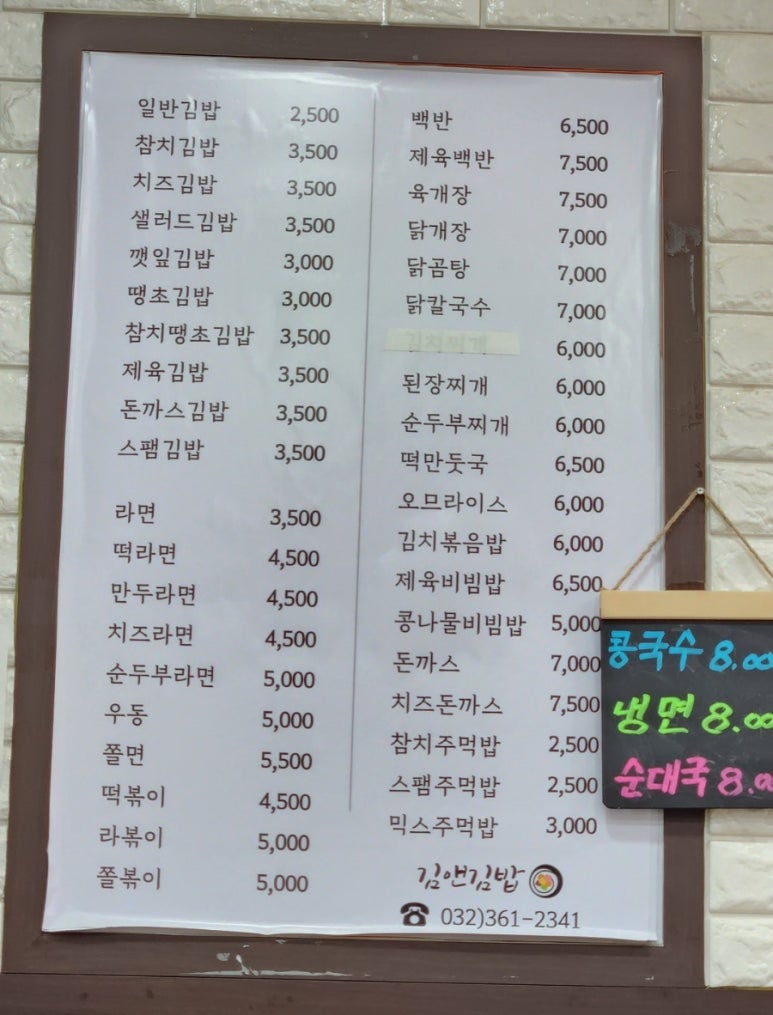 일반김밥 2,500
참치김밥 3,500
치즈김밥 3,500
샐러드김밥 3,500
깻잎김밥 3,000
땡초김밥 3,000
참치땡초김밥 3,500
제육김밥 3,500
돈까스김밥 3,500
스팸김밥 3,500
라면 3,500
떡라면 4,500
만두라면 4,500
치즈라면 4,500
순두부라면 5,000
우동 5,000
쫄면 5,500
떡볶이 4,500
라볶이 5,000
쫄볶이 5,000
백반 6,500
제육백반 7,500
육개장 7,500
닭개장 7,000
닭곰탕 7,000
닭칼국수 7,000
김치찌개 6,000
된장찌개 6,000
순두부찌개 6,000
떡만둣국 6,500
오므라이스 6,000
김치볶음밥 6,000
제육비빔밥 6,500
콩나물비빔밥 5,000
돈까스 7,000
치즈돈까스 7,500
참치주먹밥 2,500
스팸주먹밥 2,500
믹스주먹밥 3,000
김앤김밥
032)361-2341
콩국수 8.00
냉면 8.00
순대국 8.0